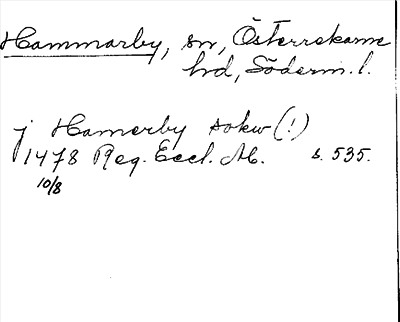 Hammarby, sn, Österrekarne
hd, Söderm. l.
j Hamerby sokw (!)
1478 Reg. Eccl. M. s. 535.
10/8